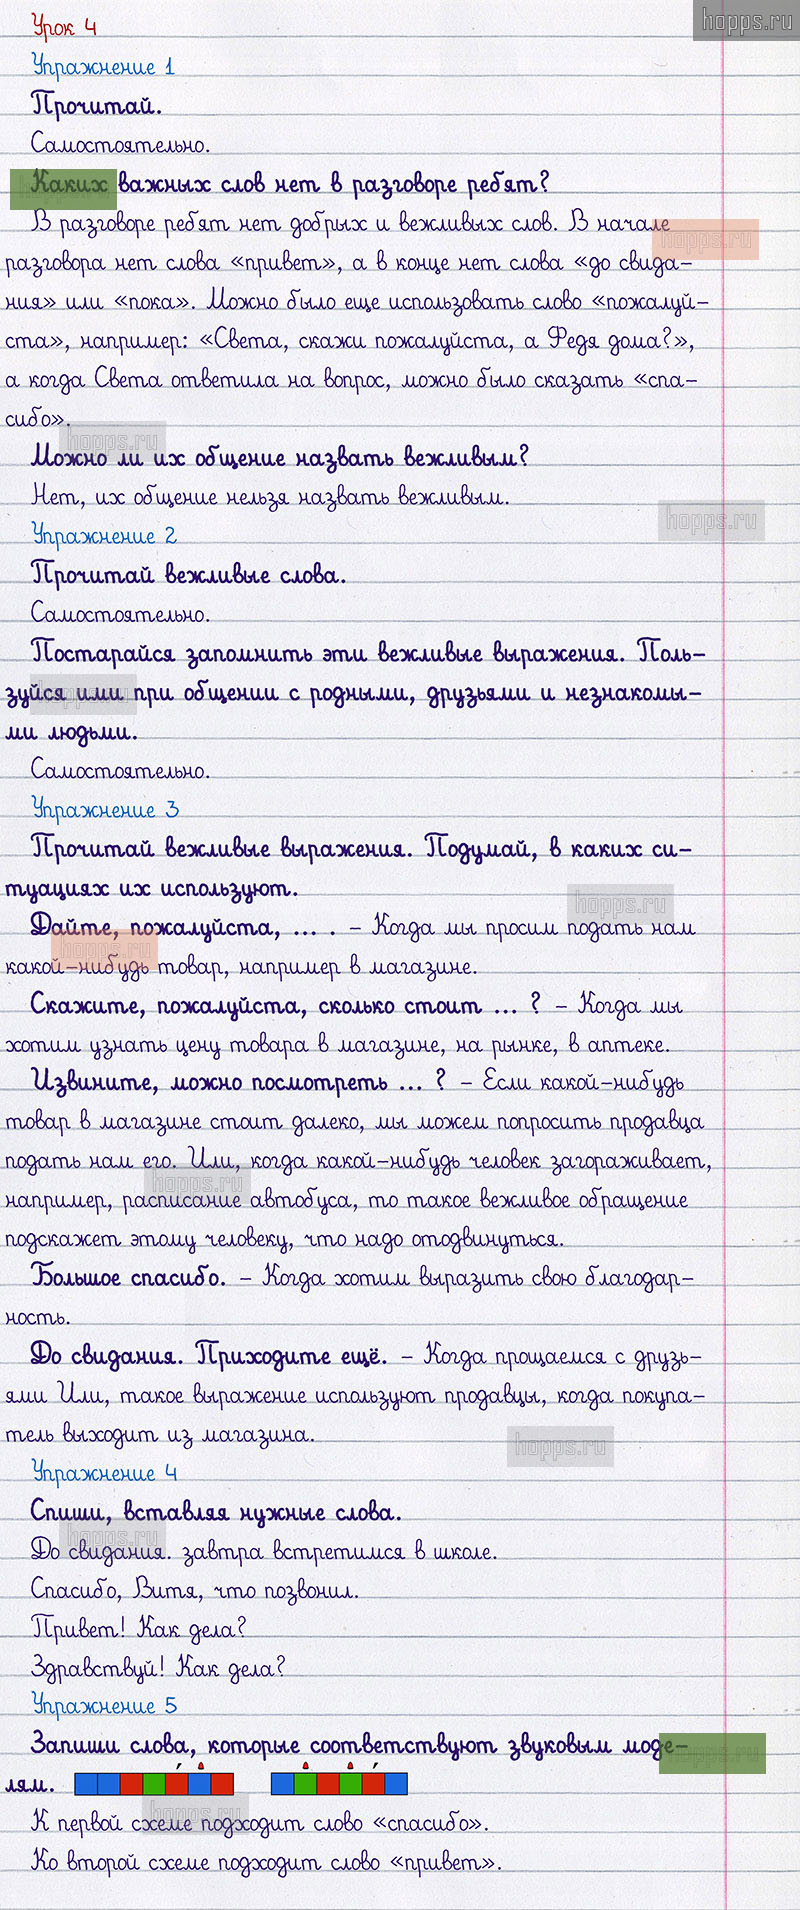 hopps.ru
Урок 4
Упражнение 1
Прочитай.
Самостоятельно.
Каких важных слов нет в разговоре ребят?
В разговоре ребят нет добрых и вежливых слов. В начале
hopps.ru
разговора нет слова «привет», а в конце нет слова «до свида-
ния» или «пока». Можно было еще использовать слово «пожалуй-
ста», например: «Света, скажи пожалуйста, а Федя дома?»,
а когда Света ответила на вопрос, можно было сказать «спа-
сибо».
hopps.ru
Можно ли их общение назвать вежливым?
Нет, их общение нельзя назвать вежливым.
hopps.ru
Упражнение 2
Прочитай вежливые слова.
Самостоятельно.
Постарайся запомнить эти вежливые выражения. Поль-
зуйся ими при общении с родными, друзьями и незнакомы-
hopps.ru
ми людьми.
Самостоятельно.
Упражнение 3
Прочитай вежливые выражения. Подумай, в каких си-
туациях их используют.
hopps.ru
Дайте, пожалуйста, ... . – Когда мы просим подать нам
hopps.ru
какой-нибудь товар, например в магазине.
Скажите, пожалуйста, сколько стоит ... ? – Когда мы
хотим узнать цену товара в магазине, на рынке, в аптеке.
Извините, можно посмотреть ... ? – Если какой-нибудь
товар в магазине стоит далеко, мы можем попросить продавца
подать нам его. Или, когда какой-нибудь человек загораживает,
hopps.ru
например, расписание автобуса, то такое вежливое обращение
подскажет этому человеку, что надо отодвинуться.
Большое спасибо. – Когда хотим выразить свою благодар-
ность.
До свидания. Приходите ещё. – Когда прощаемся с друзь-
ями Или, такое выражение используют продавцы, когда покупа-
тель выходит из магазина.
hopps.ru
Упражнение 4
Спиши, вставляя нужные слова.
hopps.ru
До свидания. завтра встретимся в школе.
Спасибо, Витя, что позвонил.
Привет! Как дела?
Здравствуй! Как дела?
Упражнение 5
Запиши слова, которые соответствуют звуковым моде-
hopps.ru
лям.
hopps.ru
К первой схеме подходит слово «спасибо».
Ко второй схеме подходит слово «привет».